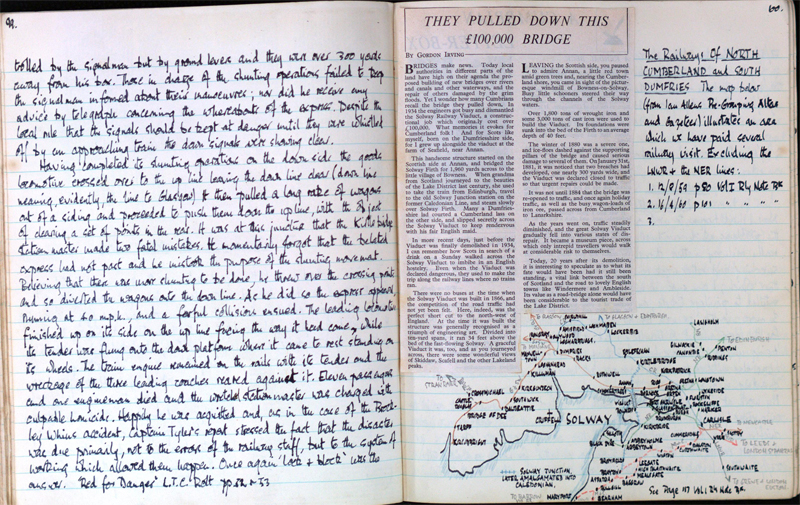 trolled by the signalman but by ground levers and they were over 300 yards
away from his box. Those in charge of the shunting operations failed to keep
the signalman informed about their manoeuvres, nor did he receive any
advice by telegraph concerning the whereabouts of the express. Despite the
local rule that the signals should be kept at danger until they were whistled
off by an approaching train the down signals were showing clear.
Having completed its shunting operations on the down side the goods
locomotive crossed over to the up line leaving the down line clear (down line
meaning, evidently, the line to Glasgow). It then pulled a long rake of wagons
out of a siding and proceeded to push them down the up line, with the object
of clearing a set of points in the rear. It was at this juncture that the
station master made two fatal mistakes. He momentarily forgot that the belated
express had not past and he mistook the purpose of the shunting movement.
Believing that there was more shunting to be done, he threw over the crossing points
and so directed the wagons onto the down line. As he did so the express appeared
running at 40 m.p.h. and a fearful collision ensued. The leading locomotive
finished up on its side on the up line facing the way it had come, while
its tender was flung onto the down platform where it came to rest standing on
its wheels. The train engine remained on the rails with its tender and the
wreckage of the three leading coaches reared against it. Eleven passengers
and one engineman died and the station master was charged with
culpable homicide. Happily he was acquitted and, as in the case of the
accident, Captain Tyler's report stressed the fact that the disaster
was due primarily, not to the errors of the railway staff, but to the system of
working which allowed them happen. Once again lock & block was the
answer. Red for Danger L.T.C. Rolt pp. 52 & 53
60.
THEY PULLED DOWN THIS
£100,000 BRIDGE
BY GORDON IRVING
BRIDGES make news. Today local
authorities in different parts of the
land have high on their agenda the pro-
posed building of new bridges over rivers
and canals and other waterways, and the
repair of others damaged by the grim
floods. Yet I wonder how many Cumbrians
recall the bridge they pulled down. In
1934 the engineers got busy and demolished
the Solway Railway Viaduct, a construc-
tional job which originally cost over
£100,000. What memories it evokes for
Cumberland folk! And for Scots like
myself, born on the Dumfriesshire side,
for I grew up alongside the viaduct at the
farm of Seafield, near Annan.
This handsome structure started on the
Scottish side at Annan, and bridged the
Solway Firth for 1,960 yards across to the
little village of Bowness. When grandma
from Scotland journeyed to the beauties
of the Lake District last century, she used
to take the train from Edinburgh, travel
to the old Solway Junction station on the
former Caledonian Lines, and steam slowly
over Solway Firth. Many a Dumfries-
shire lad courted a Cumberland lass on
the other side, and slipped secretly across
the Solway Viaduct to keep rendezvous
with his fair English maid.
In more recent days, just before the
Viaduct was finally demolished in 1934,
I can remember how Scots in search of a
drink on a Sunday walked across the
Solway Viaduct to imbibe in an English
hostelry. Even when the Viaduct was
declared dangerous, they used to make the
trip along the railway lines where no trains
ran.
There were no buses at the time when
the Solway Viaduct was built in 1866, and
the competition of the road traffic had
not yet been felt. Here, indeed, was the
perfect short cut to the north-west of
England. At the time it was built the
structure was generally recognised as a
triumph of engineering art. Divided into
ten-yard spans, it ran 34 feet above the
bed of the fast-flowing Solway. A graceful
Viaduct it was, too, and as you journeyed
across, there were some wonderful views
of Skiddaw, Scafell and the other Lakeland
peaks.
LEAVING the Scottish side, you paused
to admire Annan, a little red town
amid green trees and, nearing the Cumber-
land shore, you came in sight of the pictur-
esque windmill of Bowness-on-Solway.
Busy little schooners steered their way
through the channels of the Solway
waters.
Over 1,600 tons of wrought iron and
some 3,000 tons of cast iron were used to
build the Viaduct. Its foundations were
sunk into the bed of the Firth to an average
depth of 40 feet.
The winter of 1880 was a severe one,
and ice-floes dashed against the supporting
pillars of the bridge and caused serious
damage to several of them. On January 31st,
1881, it was noticed that two breaches had
developed, one nearly 300 yards wide, and
the Viaduct was declared closed to traffic
so that urgent repairs could be made.
It was not until 1884 that the bridge was
re-opened to traffic, and once again holiday
traffic, as well as the busy wagon-loads of
iron ore, passed across from Cumberland
to Lanarkshire.
As the years went on, traffic steadily
diminished, and the great Solway Viaduct
gradually fell into various states of dis-
repair. It became a museum piece, across
which only intrepid travellers would walk
at considerable risk to themselves.
Today, 20 years after its demolition,
it is interesting to speculate as to what its
fate would have been had it still been
standing, a vital link between the south
of Scotland and the road to lovely English
towns like Windermere and Ambleside.
Its value as a road-bridge alone would have
been considerable to the tourist trade of
the Lake District.
The Railways Of NORTH
CUMBERLAND and SOUTH
DUMFRIES The map below
(from Ian Allens Pre-Grouping Atlas
and Gazeteer) illustrates an area
which we have paid several
railway visit. Excluding the
LNWR & the NER lines:
3.
SOLWAY
SOLWAY JUNCTION
LATER AMALGAMATED INTO
CALEDONIAN.
CARLISLE
MARYPORT
SILLOTH
DUMFRIES
LOCKERBIE
ANNAN
KIRKCUDBRIGHT
DALBEATTIE
CASTLE DOUGLAS
SOUTHWAITE